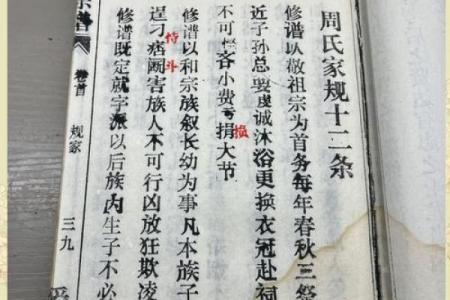 周氏家规十二条
修谱以敬祖宗为首务每年春秋三祭
近子孙总要虔诚沐浴更换衣冠赴祠
不可悭吝小费亏捐大节
修谱以和宗族叙长幼为事凡本族子
恃斗
逞刁痞害族人不可行凶放狂欺凌
修谱既定就字派以后族内生子不必
宗谱
卷首
规家
三九